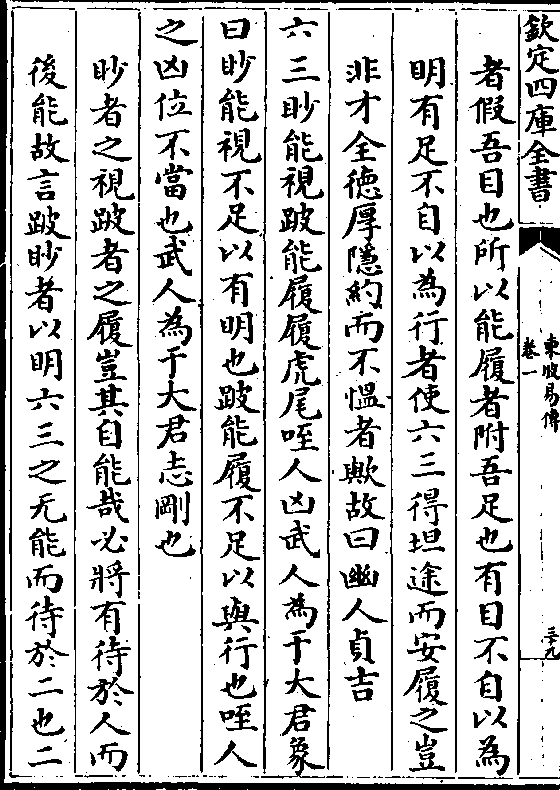 欽定四庫全書
東坡易傳
卷一
三九
者假吾目也所以能履者附吾足也有目不自以為
明有足不自以為行者使六三得坦途而安履之豈
非才全徳厚隱約而不愠者歟故曰幽人貞吉
六三眇能視跛能履履虎尾咥人凶武人為于大君象
曰眇能視不足以有明也跛能履不足以與行也咥人
之凶位不當也武人為于大君志剛也
眇者之視跛者之履豈其自能哉必將有待於人而
後能故言跛眇者以明六三之无能而待於二也二